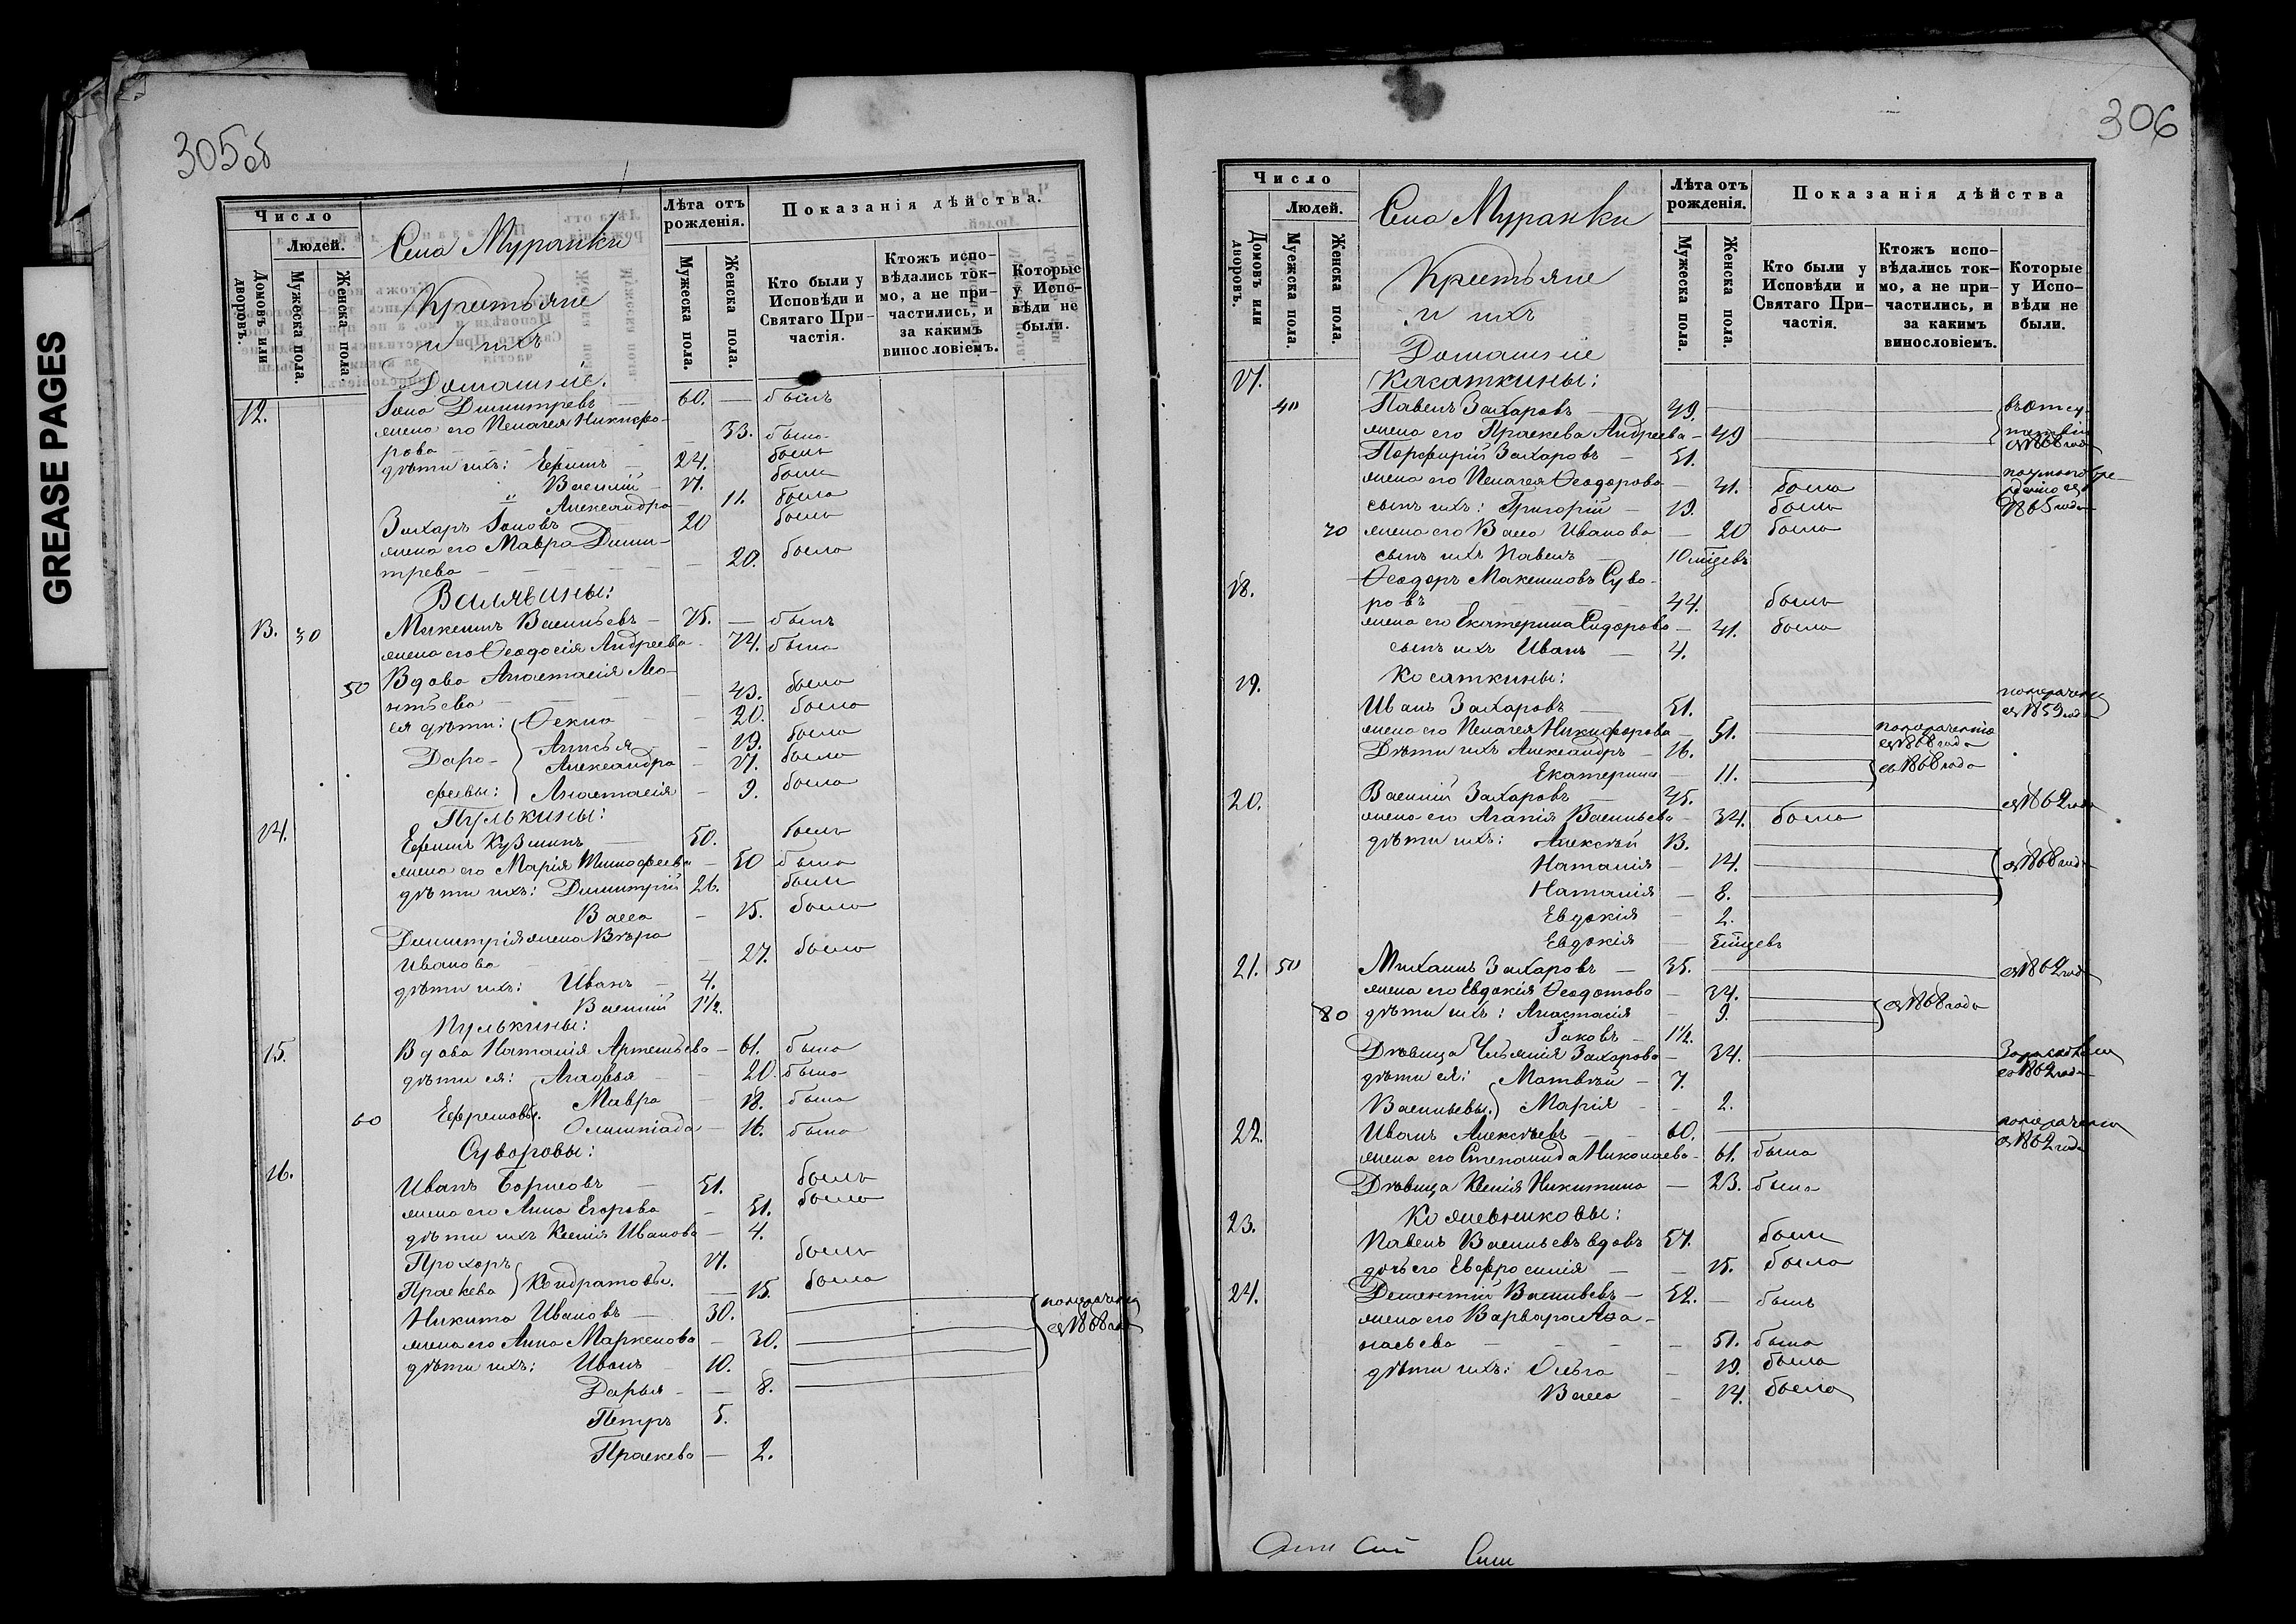 GREASE PAGES
305об
Число
Людей.
Домовъ или дворовъ.
Мужеска пола.
Женска пола
Села Муранки
Крестьяне
и ихъ
Домашніе.
Лѣта отъ рожденія.
Мужеска пола.
Женска пола.
Показанія дѣйства.
Кто были у Исповѣди и Святаго Причастія.
Ктожъ исповѣдались токмо, а не причастились, и за какимъ винословіемъ.
Которые у Исповѣди не были.
12. Іона Димитревъ 60. — былъ
жена его Пелагея Никифо-
рова 53. была
дѣти ихъ: Ефимъ 24. былъ
Василій 17. былъ
" Александра 11. была
Захаръ Іоновъ 20 былъ
жена его Мавра Дими-
трева 20. была
Валявины:
13. 30 Максимъ Васильевъ 75. — былъ
жена его Ѳеодосія Андреева 74. была
50 Вдова Анастасія Лео-
нтьева 43. была
ея дѣти: Ѳекла 20. была
Анисья 19. была
Доро- Александра 17. была
феевы: Анастасія 9. была
Пулькины:
14. Ефимъ Кузминъ 50. былъ
жена его Марія Тимофеева 50 была
дѣти ихъ: Димитрій 26. былъ
Васса 15. была
Димитрія жена Вѣра
Иванова 27. была
дѣти ихъ: Иванъ 4.
Василій 1½.
Пулькины:
15. Вдова Наталія Артемьева 61. была
дѣти ея: Агафья 20. была
Мавра 18. была
60 Ефремовы. Олимпіада 16. была
Суворовы:
16. Иванъ Борисовъ 51. былъ
жена его Анна Егорова 51. была
дѣти ихъ Ксенія Иванова 4.
Прохоръ 17. былъ
Праскева Кондратовы. 15. была
Никита Ивановъ 30.
жена его Анна Маркелова 30.
дѣти ихъ: Иванъ 10.
съ 1868 года
Дарья 8.
Петръ 5.
Праскева 2.
306
Число
Людей.
Домовъ или дворовъ.
Мужеска пола.
Женска пола.
Села Муранки
Крестьяне
и ихъ
Домашніе
Лѣта отъ рожденія.
Мужеска пола.
Женска пола.
Показанія дѣйства
Кто были у Исповѣди и Святаго Причастія.
Ктожъ исповѣдались токмо, а не причастились, и за какимъ винословіемъ.
Которые у Исповѣди не были.
17. Касаткины:
40 Павелъ Захаровъ 49. въ отсу-
жена его Праскева Андреева 49 тствіи
съ 1868 года
Порфирій Захаровъ 51.
жена его Пелагея Ѳеодорова 41. была
сынъ ихъ: Григорій 19. былъ съ 1865 года
70 жена его Васса Иванова 20 была
сынъ ихъ Павелъ 10 мѣсцевъ
18. Ѳеодоръ Максимовъ Суво-
ровъ 44. былъ
жена его Екатерина Сидорова 41. была
сынъ ихъ Иванъ 4.
19. Косаткины:
Иванъ Захаровъ 51. съ 1859 года
жена его Пелагея Никифорова 51. съ 1868 года
Дѣти ихъ Александръ 16.
Екатерина 11. съ 1868 года
20. Василій Захаровъ 45. съ 1862 года
жена его Агапія Васильева 34. была
дѣти ихъ: Алексѣй 13.
Наталія 14. съ 1868 года
Наталія 8.
Евдокія 2.
Евдокія мѣсцевъ
21. 50 Михаилъ Захаровъ 35. съ 1862 года
жена его Евдокія Ѳеодотова 34.
80 дѣти ихъ: Анастасія 9. съ 1868 года
Іаковъ 1½.
Дѣвица Захарова 34.
дѣти ея: Матвѣй 7. съ 1862 года
Васильевы. Марія 2.
22. Иванъ Алексѣевъ 60.
жена его Степанида Николаева 61. была съ 1862 года
Дѣвица Ксенія Никитина 23. была
23. Кожевниковы:
Павелъ Васильевъ вдовъ 57. былъ
дочь его Евфросинія 15. была
24. Дементій Васильевъ 52. былъ
жена его Варвара Аѳа-
насьева 51. была
дѣти ихъ: Ольга 19. была
Васса 14. была